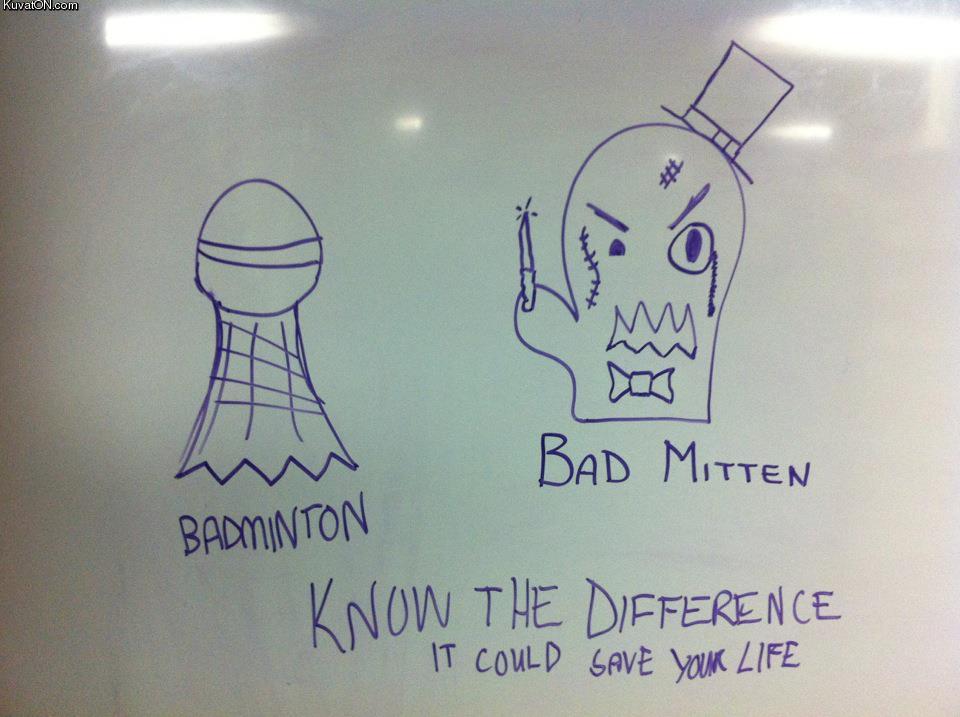 KuvatON.com
BADMINTON
BAD MITTEN
KNOW THE DIFFERENCE
IT COULD SAVE YOUR LIFE